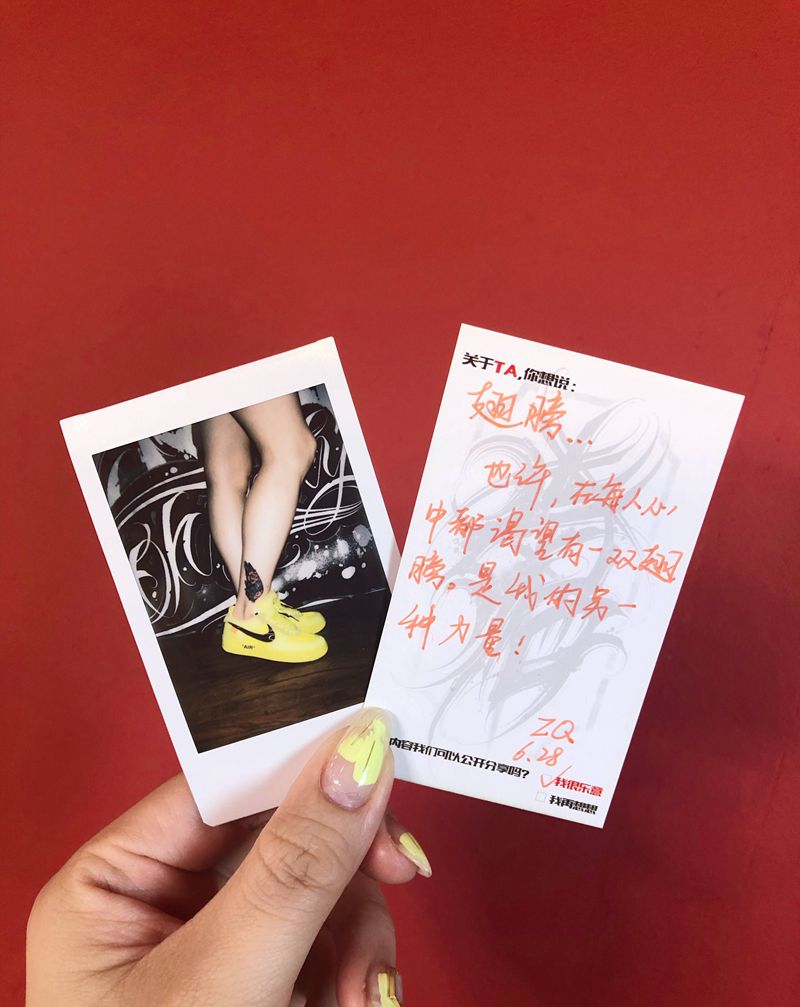 "AIR"
关于TA,你想说：
翅膀...
也许，在每人心
中都渴望有一双翅
膀。是我的另一
种力量！
ZQ
6.28
内容我们可以公开分享吗？
我很乐意
我再想想